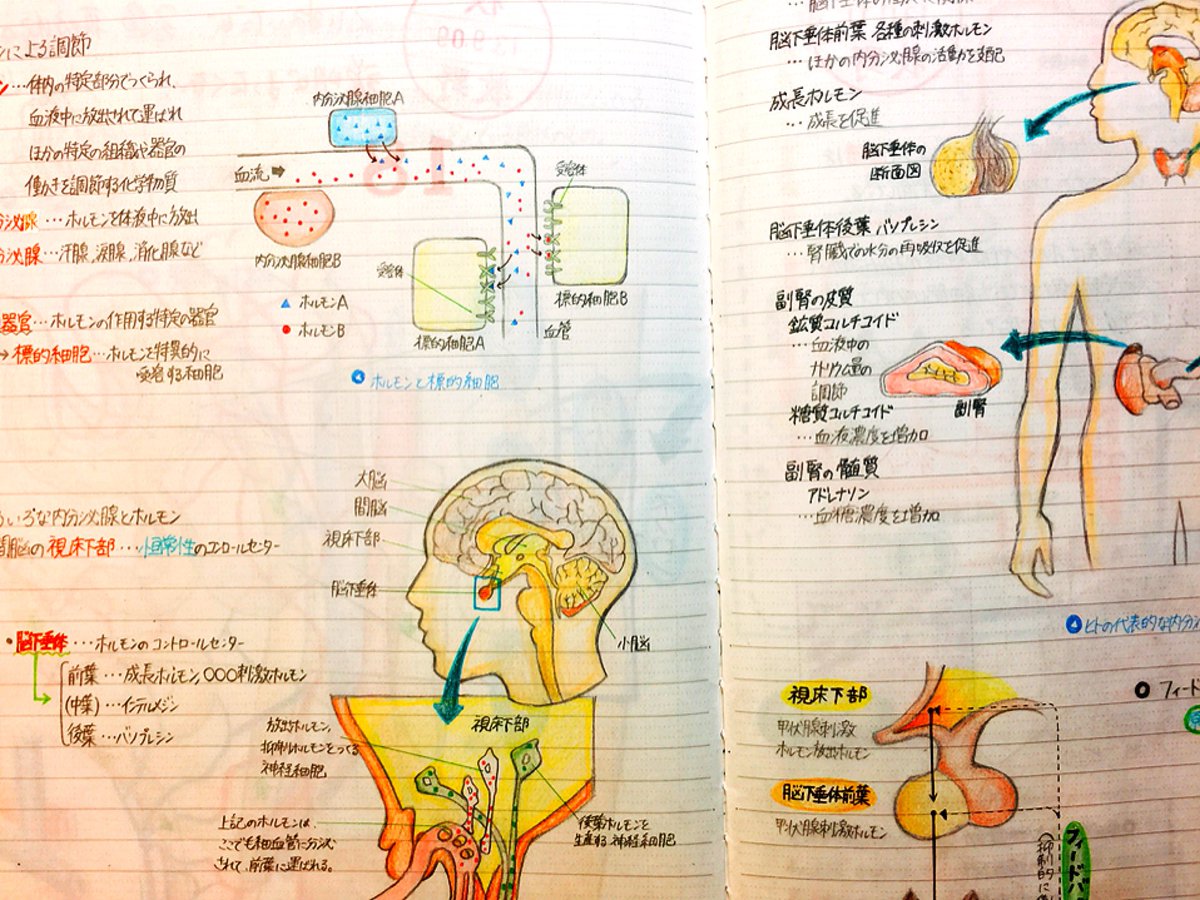 による調節
ン…体内の特定部分でつくられ、
血液中に放出されて運ばれ
ほかの特定の組織や器官の
働きを調節する化学物質
分泌腺…ホルモンを体液中に放出
分泌腺…汗腺、涙腺、消化腺など
器官…ホルモンの作用する特定の器官
→標的細胞…ホルモンを特異的に
受容する細胞
内分泌腺細胞A
血流
受容体
内分泌腺細胞B
受容体
標的細胞B
ホルモンA
ホルモンB
標的細胞A
血管
ホルモンと標的細胞
ろいろな内分泌腺とホルモン
間脳の視床下部…恒常性のコントロールセンター
大脳
間脳
視床下部
脳下垂体
小脳
・脳下垂体…ホルモンのコントロールセンター
前葉…成長ホルモン、○○○刺激ホルモン
(中葉)…インテルメジン
後葉…バソプレシン
視床下部
放出ホルモン、
抑制ホルモンをつくる
神経細胞
上記のホルモンは、
ここで毛細血管に分泌
されて、前葉に運ばれる。
後葉ホルモンを
生産する神経細胞
脳下垂体前葉 各種の刺激ホルモン
…ほかの内分泌腺の活動を支配
成長ホルモン
…成長を促進
脳下垂体の
断面図
脳下垂体後葉 バソプレシン
…腎臓での水分の再吸収を促進
副腎の皮質
鉱質コルチコイド
…血液中の
ナトリウム量の
調節
糖質コルチコイド
…血液濃度を増加
副腎
副腎の髄質
アドレナリン
…血糖濃度を増加
ヒトの代表的な内分
視床下部
甲状腺刺激
ホルモン放出ホルモン
脳下垂体前葉
甲状腺刺激ホルモン
フィード
フィードバ
(抑制的に